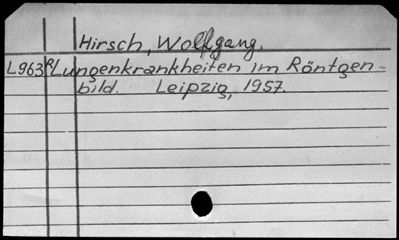 Hirsch, Wolfgang.
L963R Lungenkrankheiten im Röntgen-
bild. Leipzig, 1957.